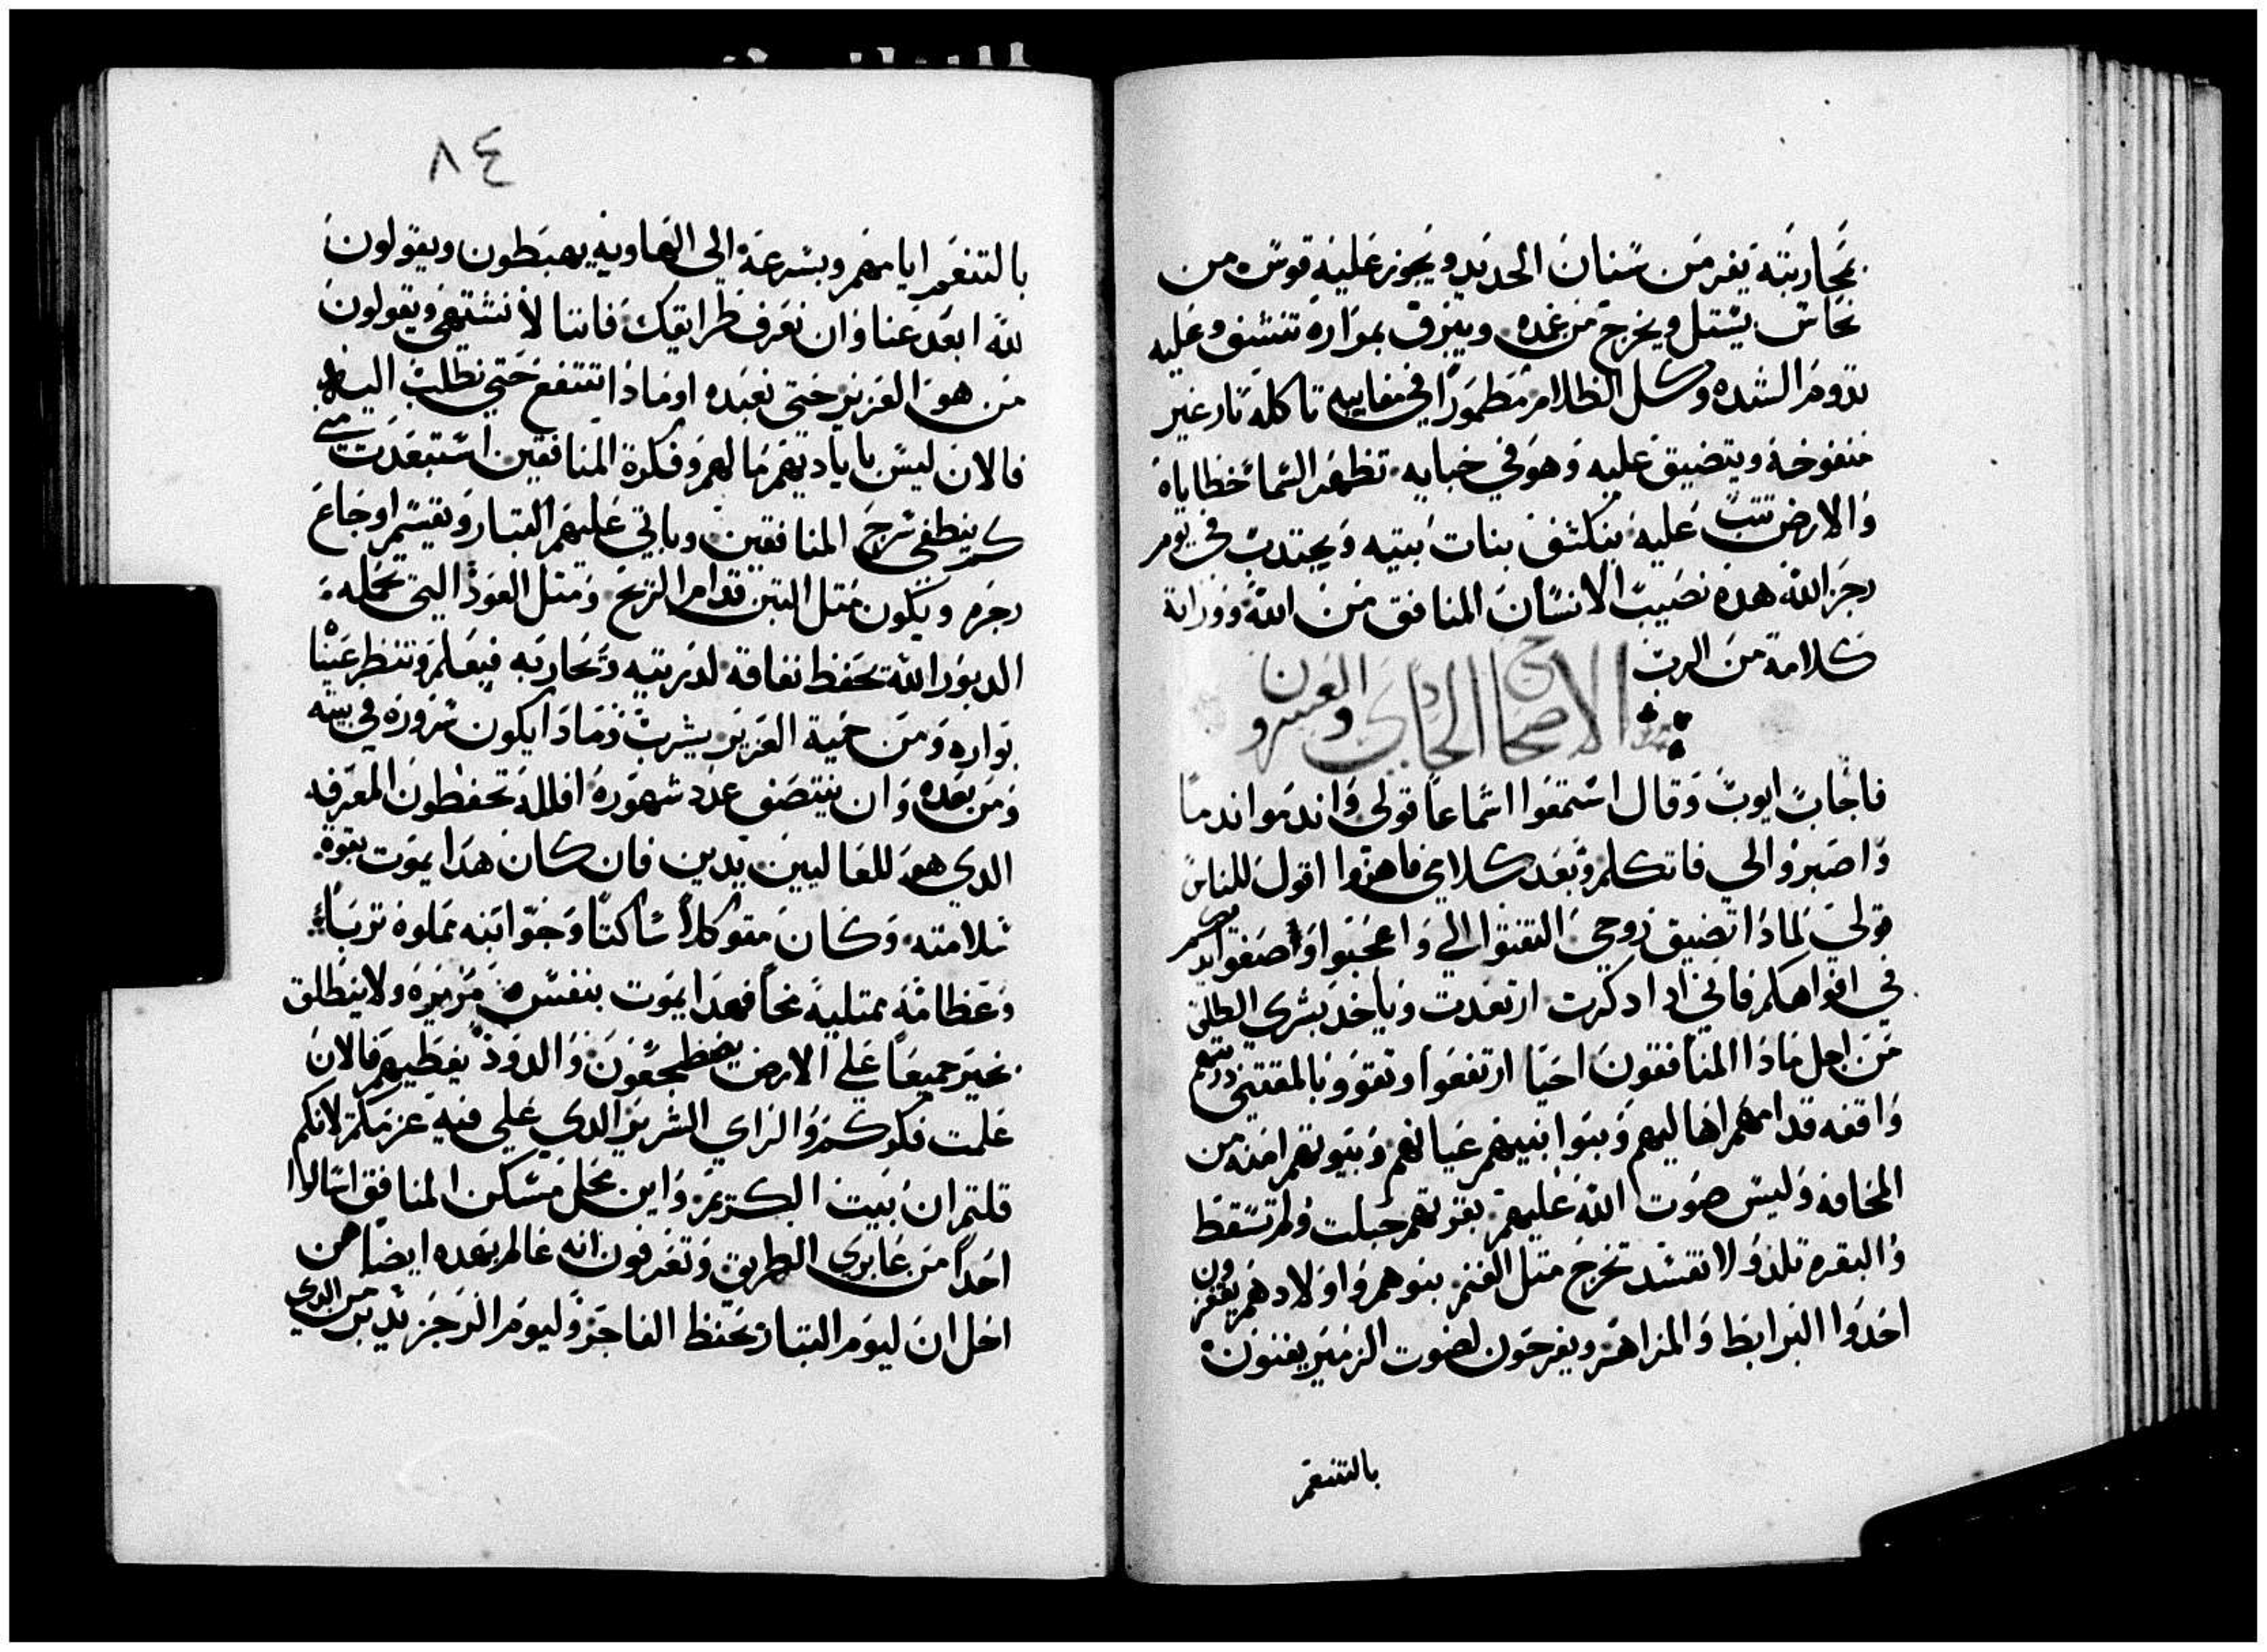 بمحاربته يفر من سنان الحديد ويجوز عليه قوس من
نحاس يستل ويخرج من غمده ويبرق بمواره تنشف وعليه
تدوم الشده وكل الظلام مطمورا في مغاييه تاكله نار غير
منفوخة ويتضيق عليه وهو في خبايه تظهر السما خطاياه
والارض تتب عليه ينكشف بنات بيته ويجتدب في يوم
رجز الله هده نصيب الانسان المنافق من الله ووراتة
كلامة من الرب
الاصحاح الحادي والعسرون
فاجاب ايوب وقال استمعوا اسماعا قولي واندموا ندما
واصبروا لي فاتكلم وبعد كلامي فاهزوا اقول للناس
قولي لمادا تضيق روحي التفتوا الي واعجبوا وضعوا ايديكم
في افواهكم فاني ادا دكرت ارتعدت وياخد بشري الطلق
من اجل مادا المنافقون احيا ارتفعوا وتقووا بالمقتني وزرعهم
واقفه قدامهم اهاليهم وبنوا بنيهم عيانهم وبيوتهم امنه من
المخافه وليس صوت الله عليهم بقرتهم حبلت ولم تسقط
والبقره تلد ولا تفسد تخرج متل الغنم بنوهم واولادهم يقفزون
اخدوا البرابط والمزاهر ويفرحون لصوت الزمير يفنون
بالتنعم
٨٤
بالتنعم ايامهم وبسرعة الي الهاويه يهبطون ويقولون
لله ابعد عنا وان نعرف طرايقك فاننا لا نشتهي ويقولون
من هو العزيز حتى نعبده او مادا ننتفع حتي نطلب اليه
فالان ليس باياديهم مالهم وفكرة المنافقين استبعدت مني
كم ينطفي سرج المنافقين وياتي عليهم التبار وتقيسم اوجاع
رجزه ويكون متل التبن قدام الريح ومتل العود التي تحمله
الدبور الله تحفظ نفاقه لدريته وتحاربه فيعلم وتنظر عينا
بواره ومن حمية العزيز يشرب ومادا يكون سروره في بيته
ومن بعده وان ينتصف عدد شهوره افلله تحفظون المعرفه
الدي هو للعاليين يدين فان كان هدا يموت بقوة
سلامته وكان متوكلا ساكتا وجوا اتنه مملوه تربا
وعظامه ممتليه مخا فهدا يموت بنفس مريره ولا ينطلق
بخير جميعا علي الارض يضطجعون والدود يغطيهم فالان
علمت فكركم والراي الشرير الدي علي فيه عزمكم لانكم
قلتم ان بيت الكريم واين محل مسكن المنافق اسالوا
احدا من عابري الطريق وتعرفون انه عالم بهده ايضا من
اجل ان ليوم التبار تحفظ الفاجر وليوم الرجز يدبر من الدي